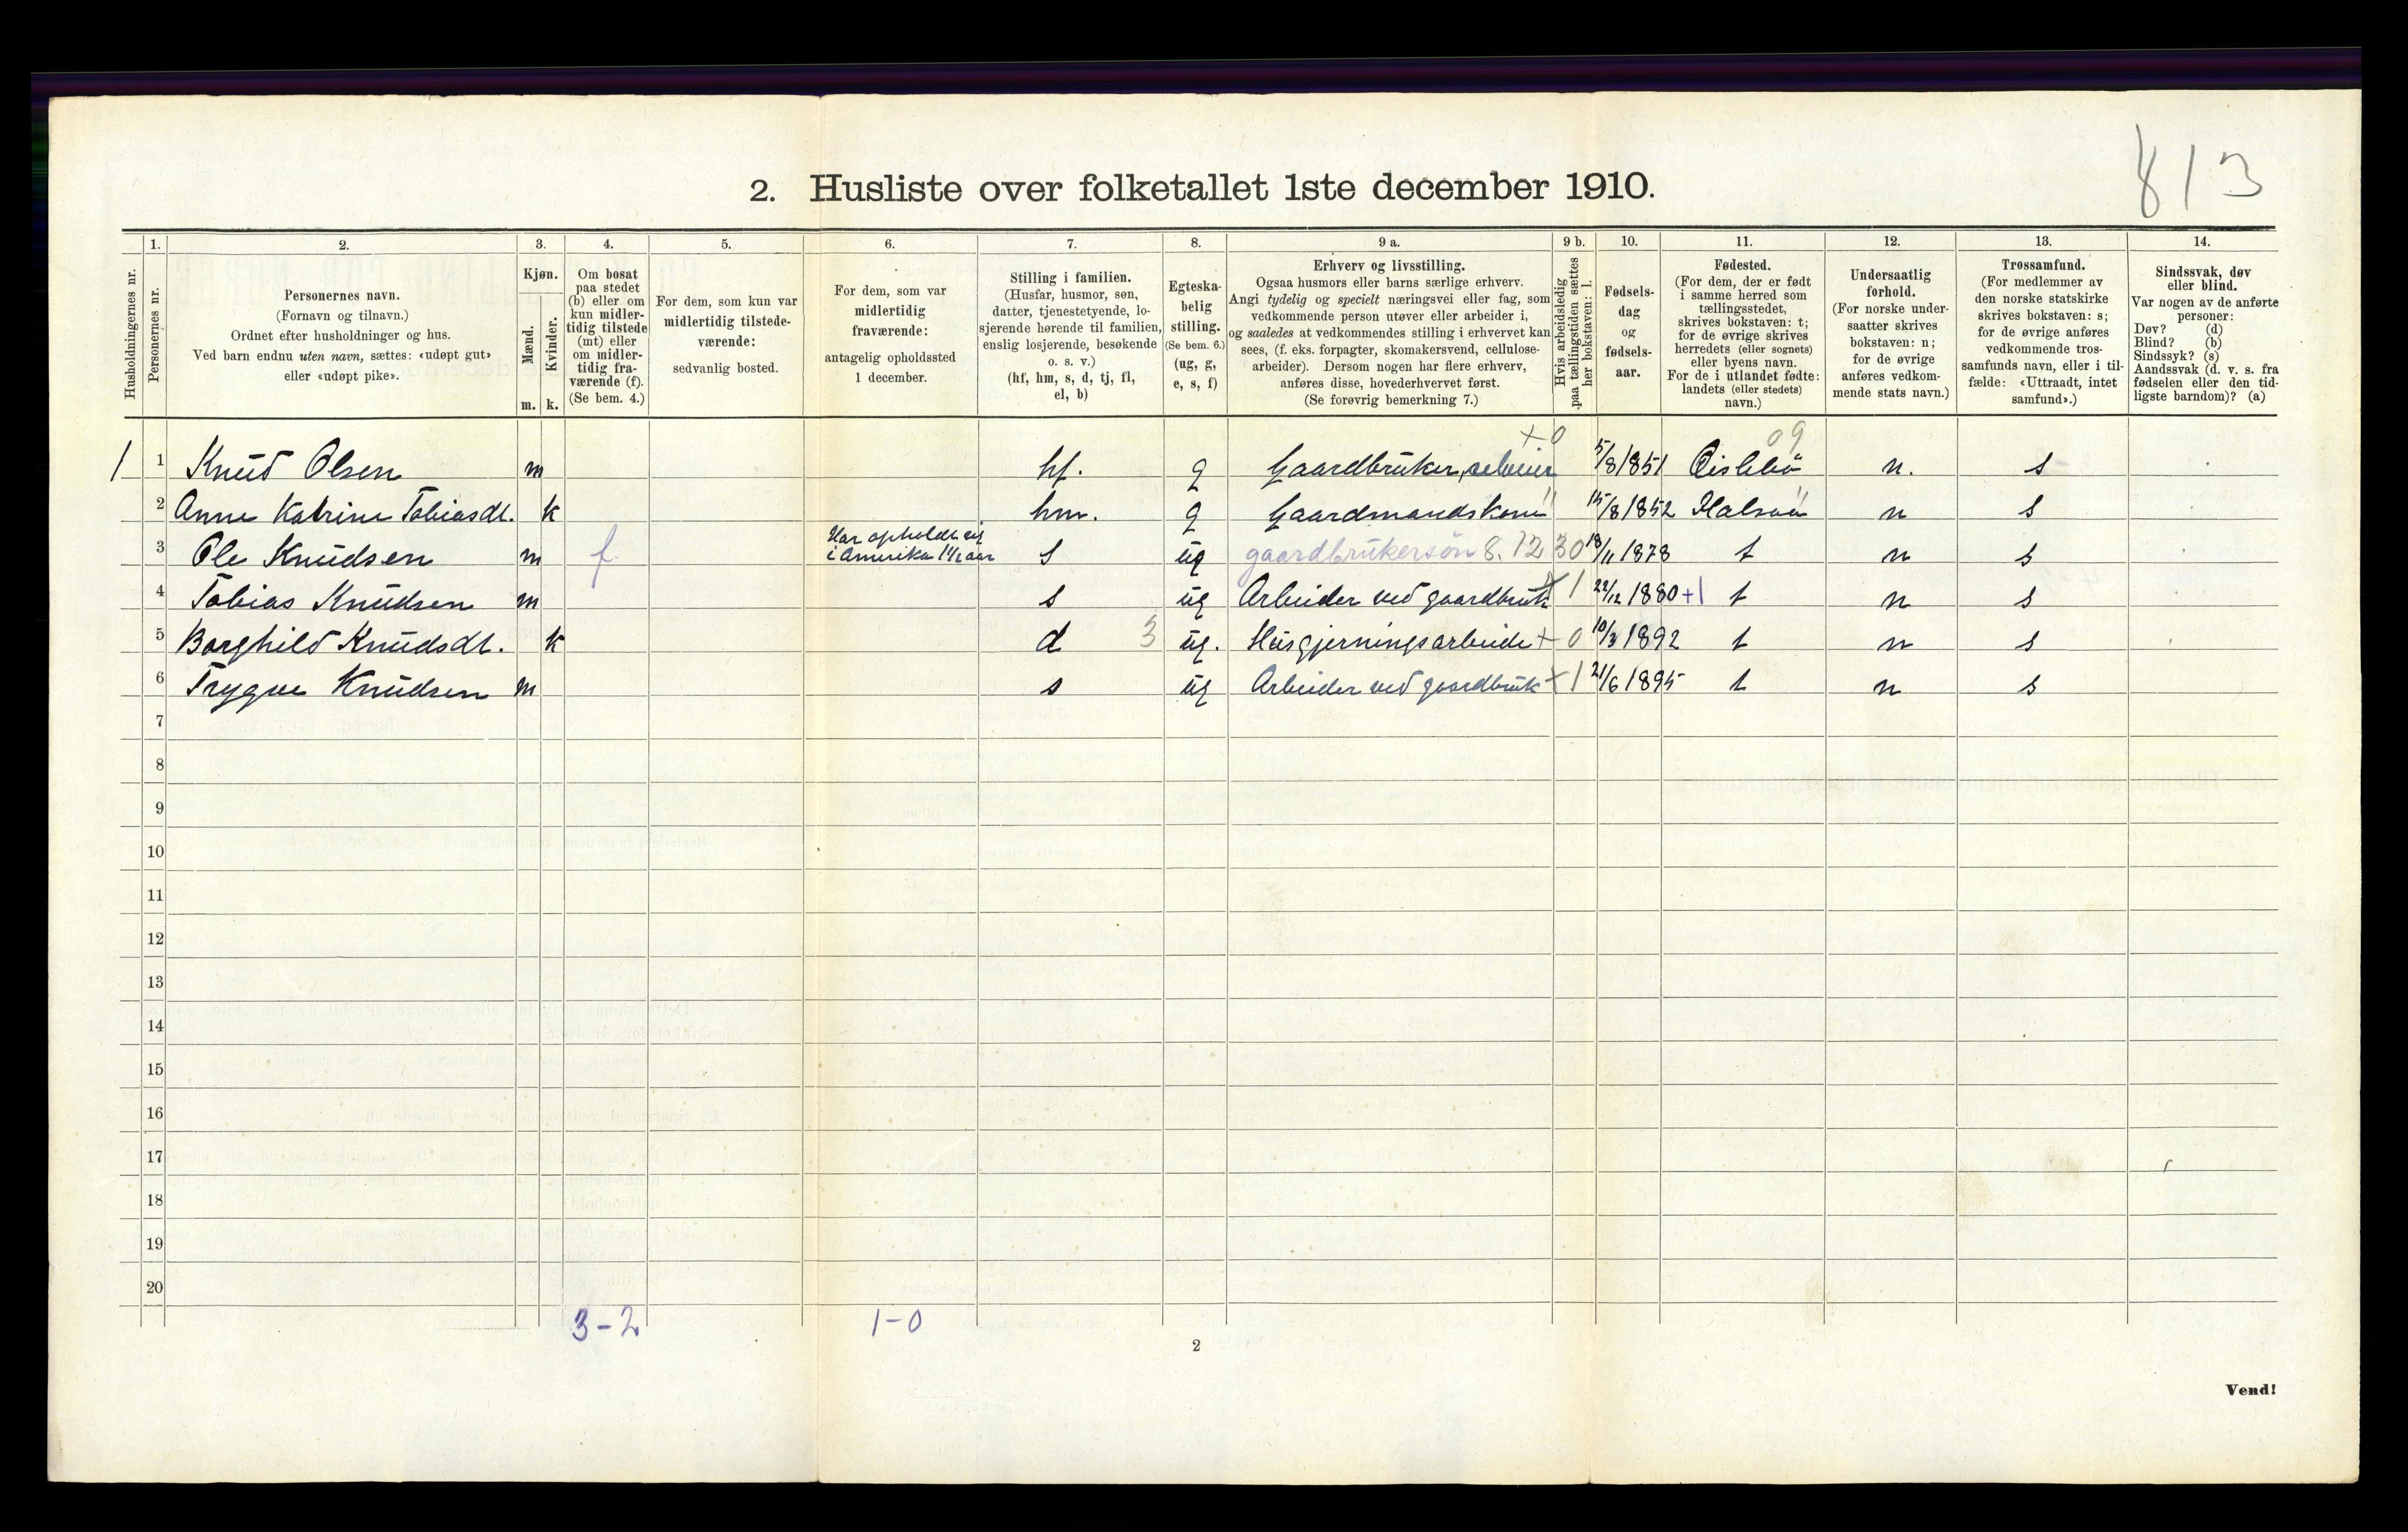 813
2. Husliste over folketallet 1ste december 1910.
Husholdningernes nr.
1. Personernes nr.
2. Personernes navn.
(Fornavn og tilnavn.)
Ordnet efter husholdninger og hus.
Ved barn endnu uten navn, sættes: «udøpt gut»
eller «udøpt pike».
3. Kjøn.
Mænd. Kvinder.
m. k.
4. Om bosat
paa stedet
(b) eller om
kun midler-
tidig tilstede
(mt) eller
om midler-
tidig fra-
værende (f).
(Se bem. 4.)
5. For dem, som kun var
midlertidig tilstede-
værende:
sedvanlig bosted.
6. For dem, som var
midlertidig
fraværende:
antagelig opholdssted
1 december.
7. Stilling i familien.
(Husfar, husmor, søn,
datter, tjenestetyende, lo-
sjerende hørende til familien,
enslig losjerende, besøkende
o. s. v.)
(hf, hm, s, d, tj, fl,
el, b)
8. Egteska-
belig
stilling.
(Se bem. 6.)
(ug, g,
e, s, f)
9 a. Erhverv og livsstilling.
Ogsaa husmors eller barns særlige erhverv.
Angi tydelig og specielt næringsvei eller fag, som
vedkommende person utøver eller arbeider i,
og saaledes at vedkommendes stilling i erhvervet kan
sees, (f. eks. forpagter, skomakersvend, cellulose-
arbeider). Dersom nogen har flere erhverv,
anføres disse, hovederhvervet først.
(Se forøvrig bemerkning 7.)
9 b. Hvis arbeidsledig
paa tællingstiden sættes
her bokstaven: l.
10. Fødsels-
dag
og
fødsels-
aar.
11. Fødested.
(For dem, der er født
i samme herred som
tællingsstedet,
skrives bokstaven: t;
for de øvrige skrives
herredets (eller sognets)
eller byens navn.
For de i utlandet fødte:
landets (eller stedets)
navn.)
12. Undersaatlig
forhold.
(For norske under-
saatter skrives
bokstaven: n;
for de øvrige
anføres vedkom-
mende stats navn.)
13. Trossamfund.
(For medlemmer av
den norske statskirke
skrives bokstaven: s;
for de øvrige anføres
vedkommende tros-
samfunds navn, eller i til-
fælde: «Uttraadt, intet
samfund».)
14. Sindssvak, døv
eller blind.
Var nogen av de anførte
personer:
Døv? (d)
Blind? (b)
Sindssyk? (s)
Aandssvak (d. v. s. fra
fødselen eller den tid-
ligste barndom)? (a)
+0 09
1 1 Knud Olsen m hf. g Gaardbruker, selveier 5/8 1851 n. s
2 Anne Katrine Tobiasdt. k hm. g Gaardmandskone 15/8 1852 Halsaa n s
Har opholdt sig
3 Ole Knudsen m f. i Amerika 1 1/2 aar s ug gaardbrukersön 8.12 30 18/11 1878 t n s
4 Tobias Knudsen m s ug Arbeider ved gaardbruk X 1 22/12 1880 +1 t n s
5 Borghild Knudsdt. k d 3 ug. Husgjerningsarbeide + 0 10/3 1892 t n s
6 Trygve Knudsen m s ug Arbeider ved gaardbruk + 1 21/6 1895 t n s
7
8
9
10
11
12
13
14
15
16
17
18
19
20
3-2 1-0
2
Vend!